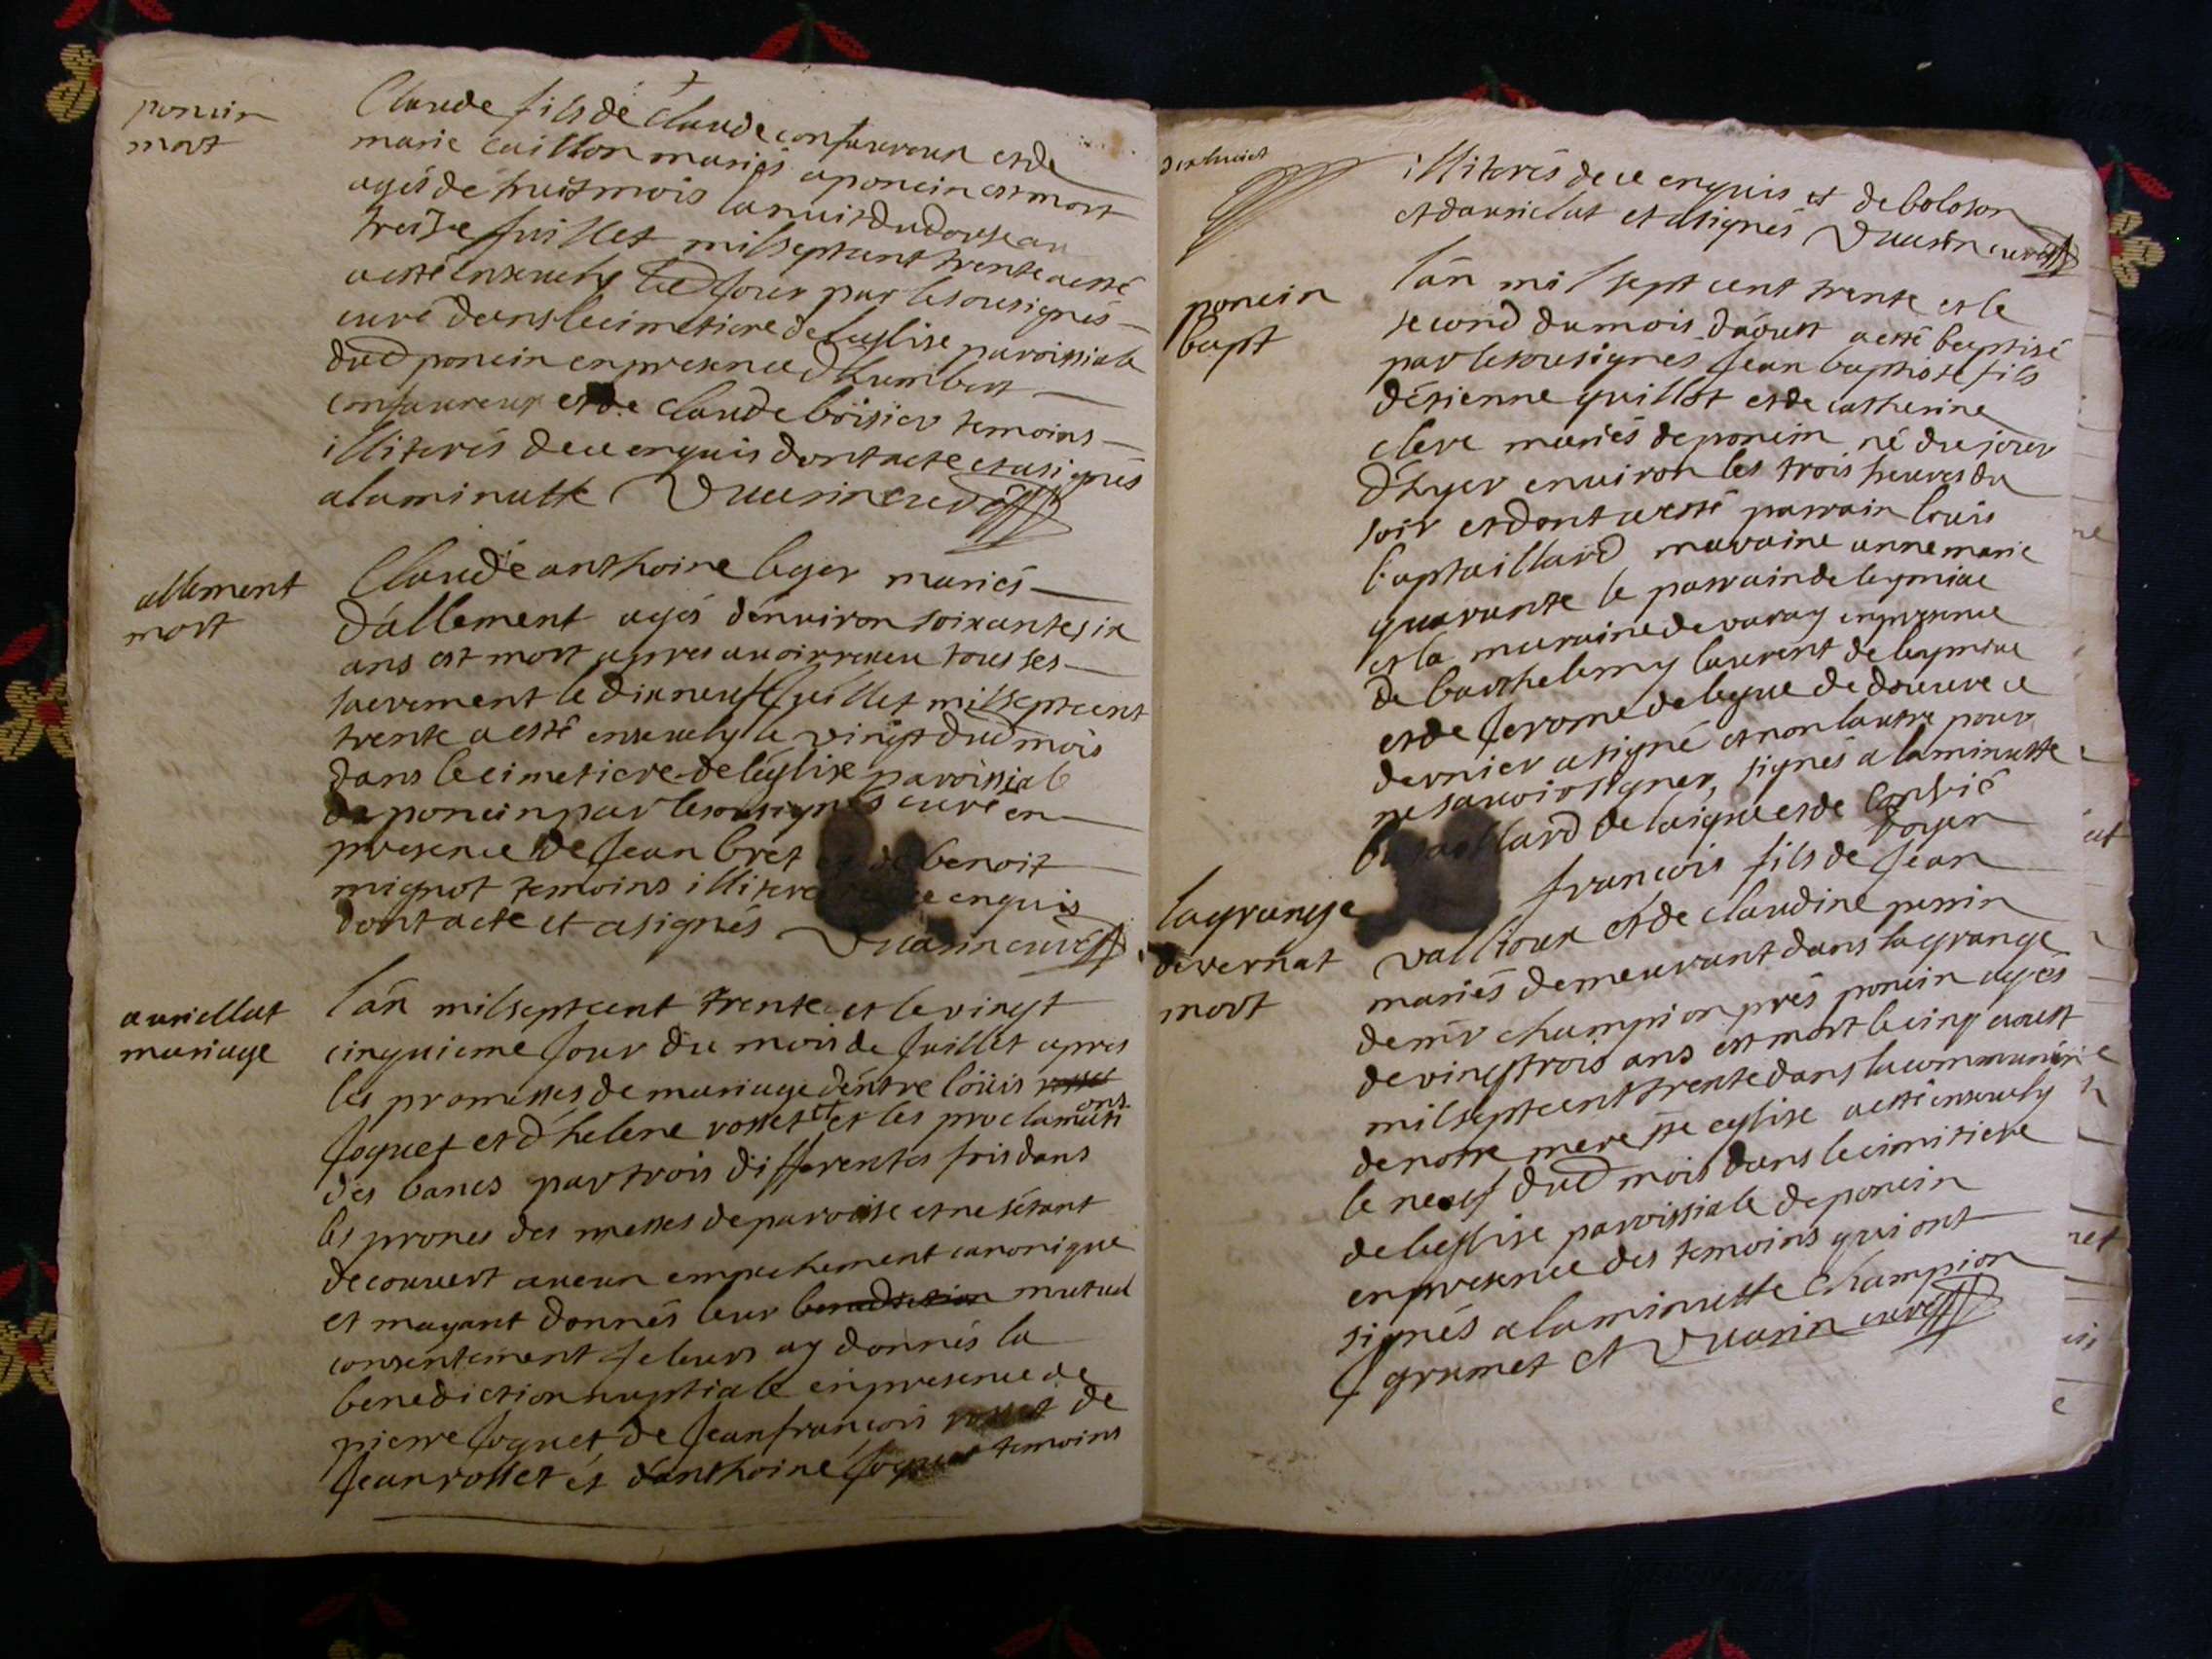 poncin
mort
Claude fils de Claude confavreux et de
marie caillon mariés a poncin est mort
agés de huit mois la nuit du douse au
treise juillet mil sept cent trente a esté
a esté enseuely led jour par le sousignés
curé dans le cimetiere de leglise paroissiale
dud poncin en presence d humbert
confavreux et de claude boisier temoins
illiterés de ce enquis dont acte et a signés
a la minutte Vuarin curé
allement
mort
Claude anthoine leger mariés
d'allement agés d'enuiron soixante six
ans est mort apres auoir receu tous ses
sacrement le dixneuf juillet mil sept cent
trente a esté enseuely le vingt dud mois
dans le cimetiere de léglise paroissiale
de poncin par le sousignés curé en
presence de jean bret et de benoit
mignot temoins illitere ce enquis
dont acte et a signés Vuarin curé
auriellat
mariage
lán mil sept cent trente et le vingt
cinquieme jour du mois de juillet apres
les promesses de mariage déntre loüis rosset
joguet et d'helene rosset et les proclamati
ons
des bancs par trois differentes fois dans
les prones des messes de paroisse et ne sétant
decouuert aucun empechement canonique
et mayant donnés leur benediction mutuel
consentement je leurs ay donnés la
benediction nuptiale en presence de
pierre joguet de jean francois rosset de
jean rosset et d'anthoine joguet temoins
illiterés de ce enquis et de boloson
et dauriellat et a signés Vuarin curé
poncin
bapt
lán mil sept cent trente et le
second du mois dáoust a esté baptisé
par le sousignés jean baptiste fils
détienne guillot et de catherine
clere mariés de poncin né du jour
d'hyer enuiron les trois heures du
soir et dont a esté parrain louis
baptaillard maraine anne marie
quarante le parrain de leymiac
et la maraine de varay en presence
de barthelemy laurent de leymiac
et de jerome delegue de douure ce
dernier a signé et non lautre pour
ne sauoir signer, signés a la minutte
lard delaigue et de
lagrange
de vernat
mort
francois fils de jean
vallioux et de claudine perrin
mariés demeurant dans la grange
de mr champion prés poncin agés
de vingt trois ans est mort le cinq aoust
mil sept cent trente dans la communion
de notre mere ste eglise a esté enseuely
le neuf dud mois dans le cimitiere
de leglise paroissiale de poncin
en presence des temoins qui ont
signés a la minutte Champion
j grumet et Vuarin curé